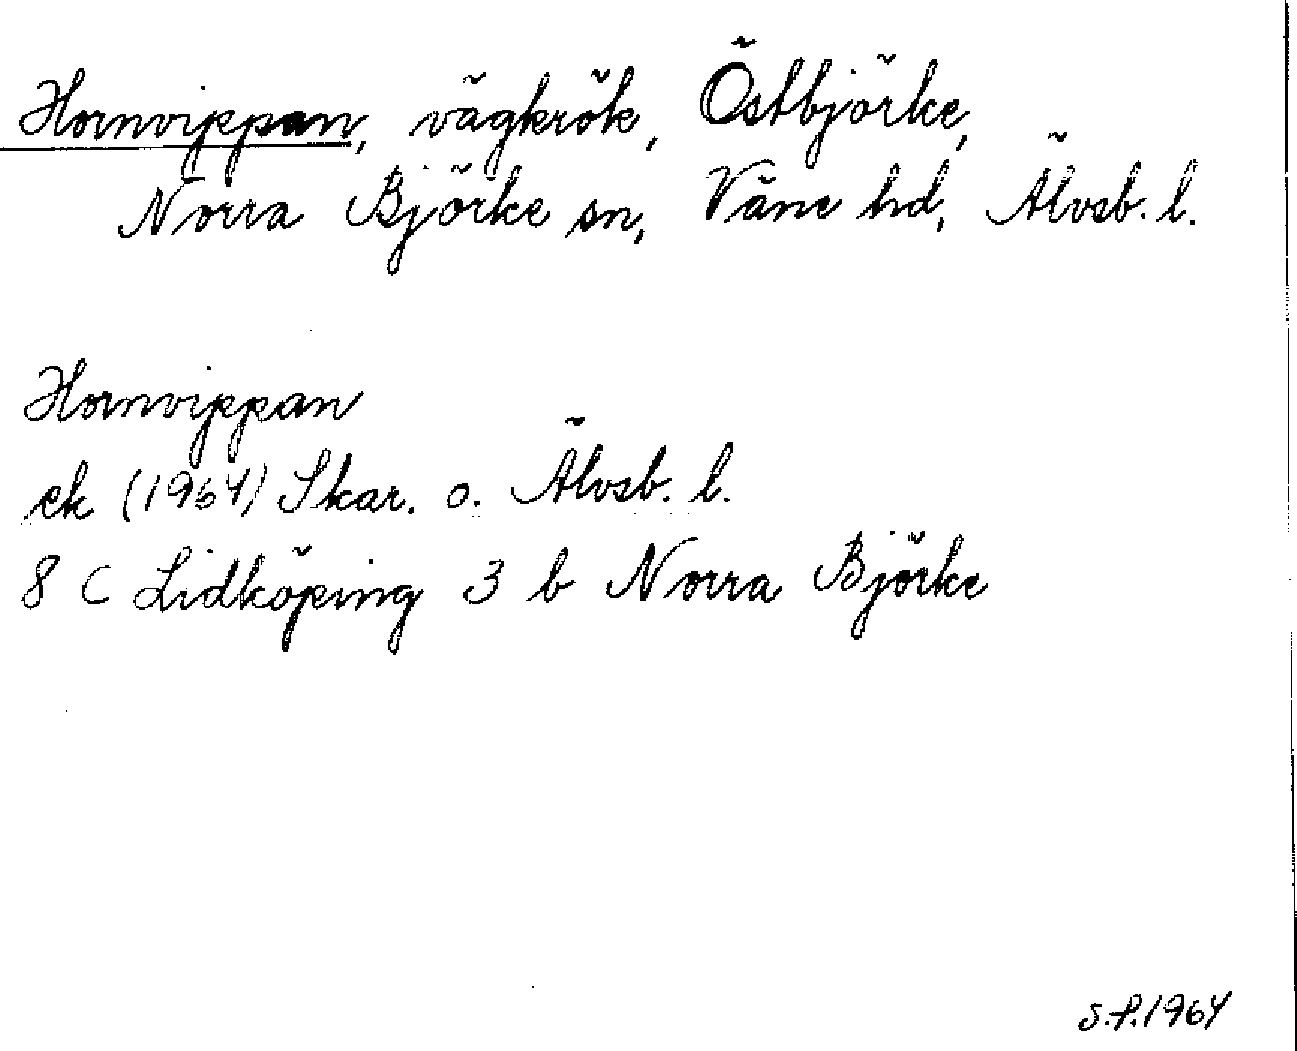 Hornvippan, vägkrök, Östbjörke,
Norra Björke sn, Väne hd, Älvsb. l.
Hornvippan
ek (1964) Skar. o. Älvsb. l.
8 C Lidköping 3 b Norra Björke
S.P. 1964